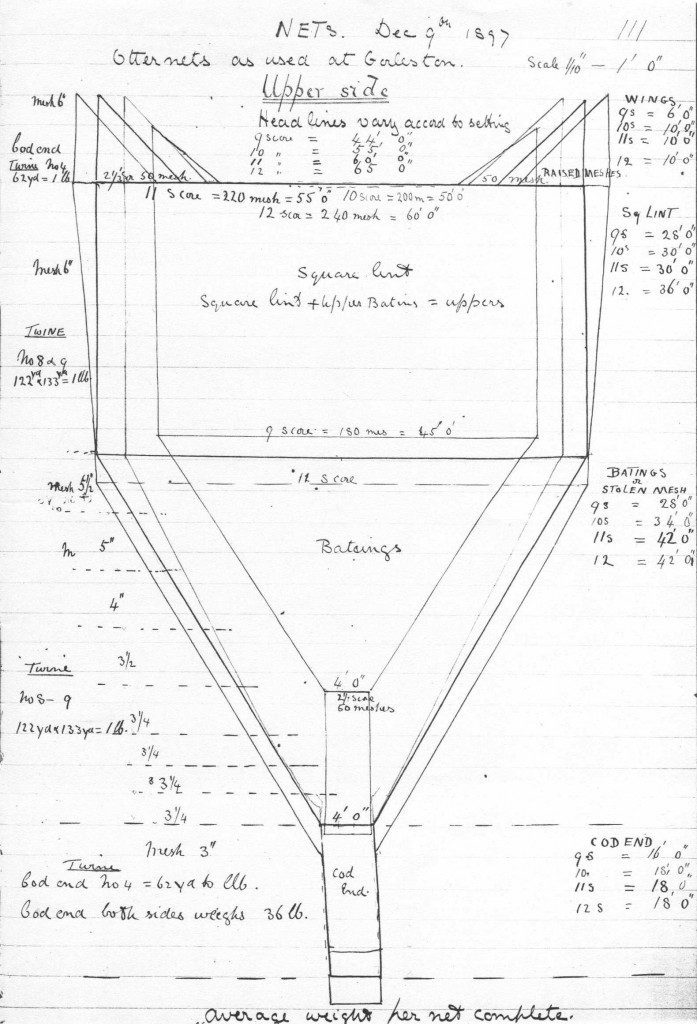 NETS. Dec 9th 1897
111
Otter nets as used at Gorleston.
Scale 1/10" – 1' 0"
Upper side
Head lines vary accord to setting
9 score = 44' 0"
10 " = 55' 0"
11 " = 60' 0"
12 " = 65 0"
Mesh 6"
Cod end
Twine No 4
62yd = 1 lb
2½ or 50 mesh
50 mesh
RAISED MESHES.
WINGS
9s = 6' 0"
10s = 10' 0"
11s = 10' 0"
12 = 10' 0"
11 Score = 220 mesh = 55' 0" 10 score = 200m = 50' 0"
12 scor = 240 mesh = 60' 0"
Sq LINT
9s = 28' 0"
10s = 30' 0"
11s = 30' 0"
12. = 36' 0"
Mesh 6"
Square lint
Square lint + Upper Batins = uppers
TWINE
No 8 & 9
122yd x 133yd = 1 lb.
9 score = 180 mes = 45' 0'
12 score
Mesh 5½"
BATINGS
or
STOLEN MESH
9s = 28' 0"
10s = 34' 0"
11s = 42' 0"
12 = 42' 0"
m 5"
Bateings
4"
3½
Twine
No 8 - 9
122yd x 133yd = 1 lb.
4' 0"
2½ score
60 meshes
3¼
3¼
3¼
3¼
4' 0"
Mesh 3"
Twine
Cod end No 4 = 62yd to 1lb.
Cod end both sides weighs 36 lb.
Cod
End.
COD END
9s = 16' 0"
10s = 18' 0"
11s = 18, 0
12s = 18' 0"
average weight per net complete.